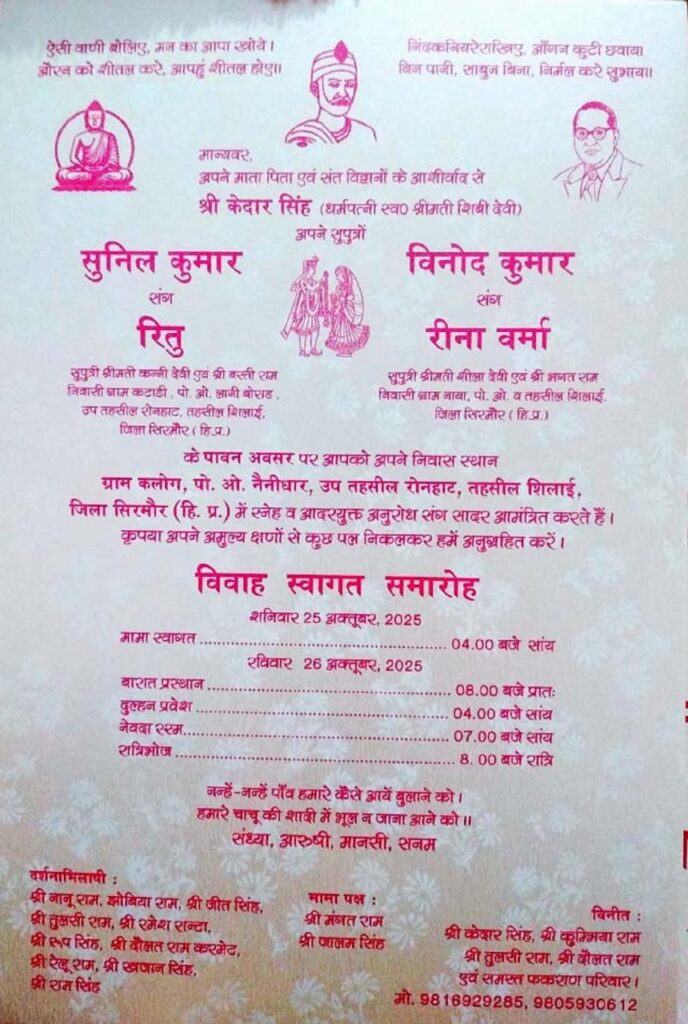 ऐसी वाणी बोलिए, मन का आपा खोये।
औरन को शीतल करे, आपहुं शीतल होए।।
निंदकनियरेराखिए, आँगन कुटी छवाय।
बिन पानी, साबुन बिना, निर्मल करे सुभाय।।
मान्यवर,
अपने माता पिता एवं संत विद्वानों के आशीर्वाद से
श्री केदार सिंह (धर्मपत्नी स्व0 श्रीमती शिबी देवी)
अपने सुपुत्रों
सुनिल कुमार
संग
रितु
सुपुत्री श्रीमती कन्नी देवी एवं श्री बस्ती राम
निवासी ग्राम कटाडी, पो. ओ. लानी बोराड,
उप तहसील रोनहाट, तहसील शिलाई,
जिला सिरमौर (हि.प्र.)
विनोद कुमार
संग
रीना वर्मा
सुपुत्री श्रीमती शीला देवी एवं श्री भगत राम
निवासी ग्राम नाया, पो. ओ. व तहसील शिलाई,
जिला सिरमौर (हि.प्र.)
के पावन अवसर पर आपको अपने निवास स्थान
ग्राम कलोग, पो. ओ. नैनीधार, उप तहसील रोनहाट, तहसील शिलाई,
जिला सिरमौर (हि. प्र.) में स्नेह व आदरयुक्त अनुरोध संग सादर आमंत्रित करते हैं।
कृपया अपने अमुल्य क्षणों से कुछ पल निकलकर हमें अनुग्रहित करें।
विवाह स्वागत समारोह
शनिवार 25 अक्तूबर, 2025
मामा स्वागत ................................................ 04.00 बजे सांय
रविवार 26 अक्तूबर, 2025
बारात प्रस्थान ................................................ 08.00 बजे प्रातः
दुल्हन प्रवेश ................................................ 04.00 बजे सांय
नेवदा रस्म ................................................ 07.00 बजे सांय
रात्रिभोज ................................................ 8. 00 बजे रात्रि
नन्हें-नन्हें पाँव हमारे कैसे आयें बुलाने को।
हमारे चाचू की शादी में भूल न जाना आने को।।
संध्या, आरुषी, मानसी, सनम
दर्शनाभिलाषी :
श्री नानू राम, झोबिया राम, श्री जीत सिंह,
श्री तुलसी राम, श्री रमेश रान्टा,
श्री रूप सिंह, श्री दौलत राम करमेट,
श्री रेलू राम, श्री खजान सिंह,
श्री राम सिंह
मामा पक्ष :
श्री मंगत राम
श्री जालम सिंह
विनीत :
श्री केदार सिंह, श्री कुम्भिया राम
श्री तुलसी राम, श्री दौलत राम
एवं समस्त फकराण परिवार।
मो. 9816929285, 9805930612